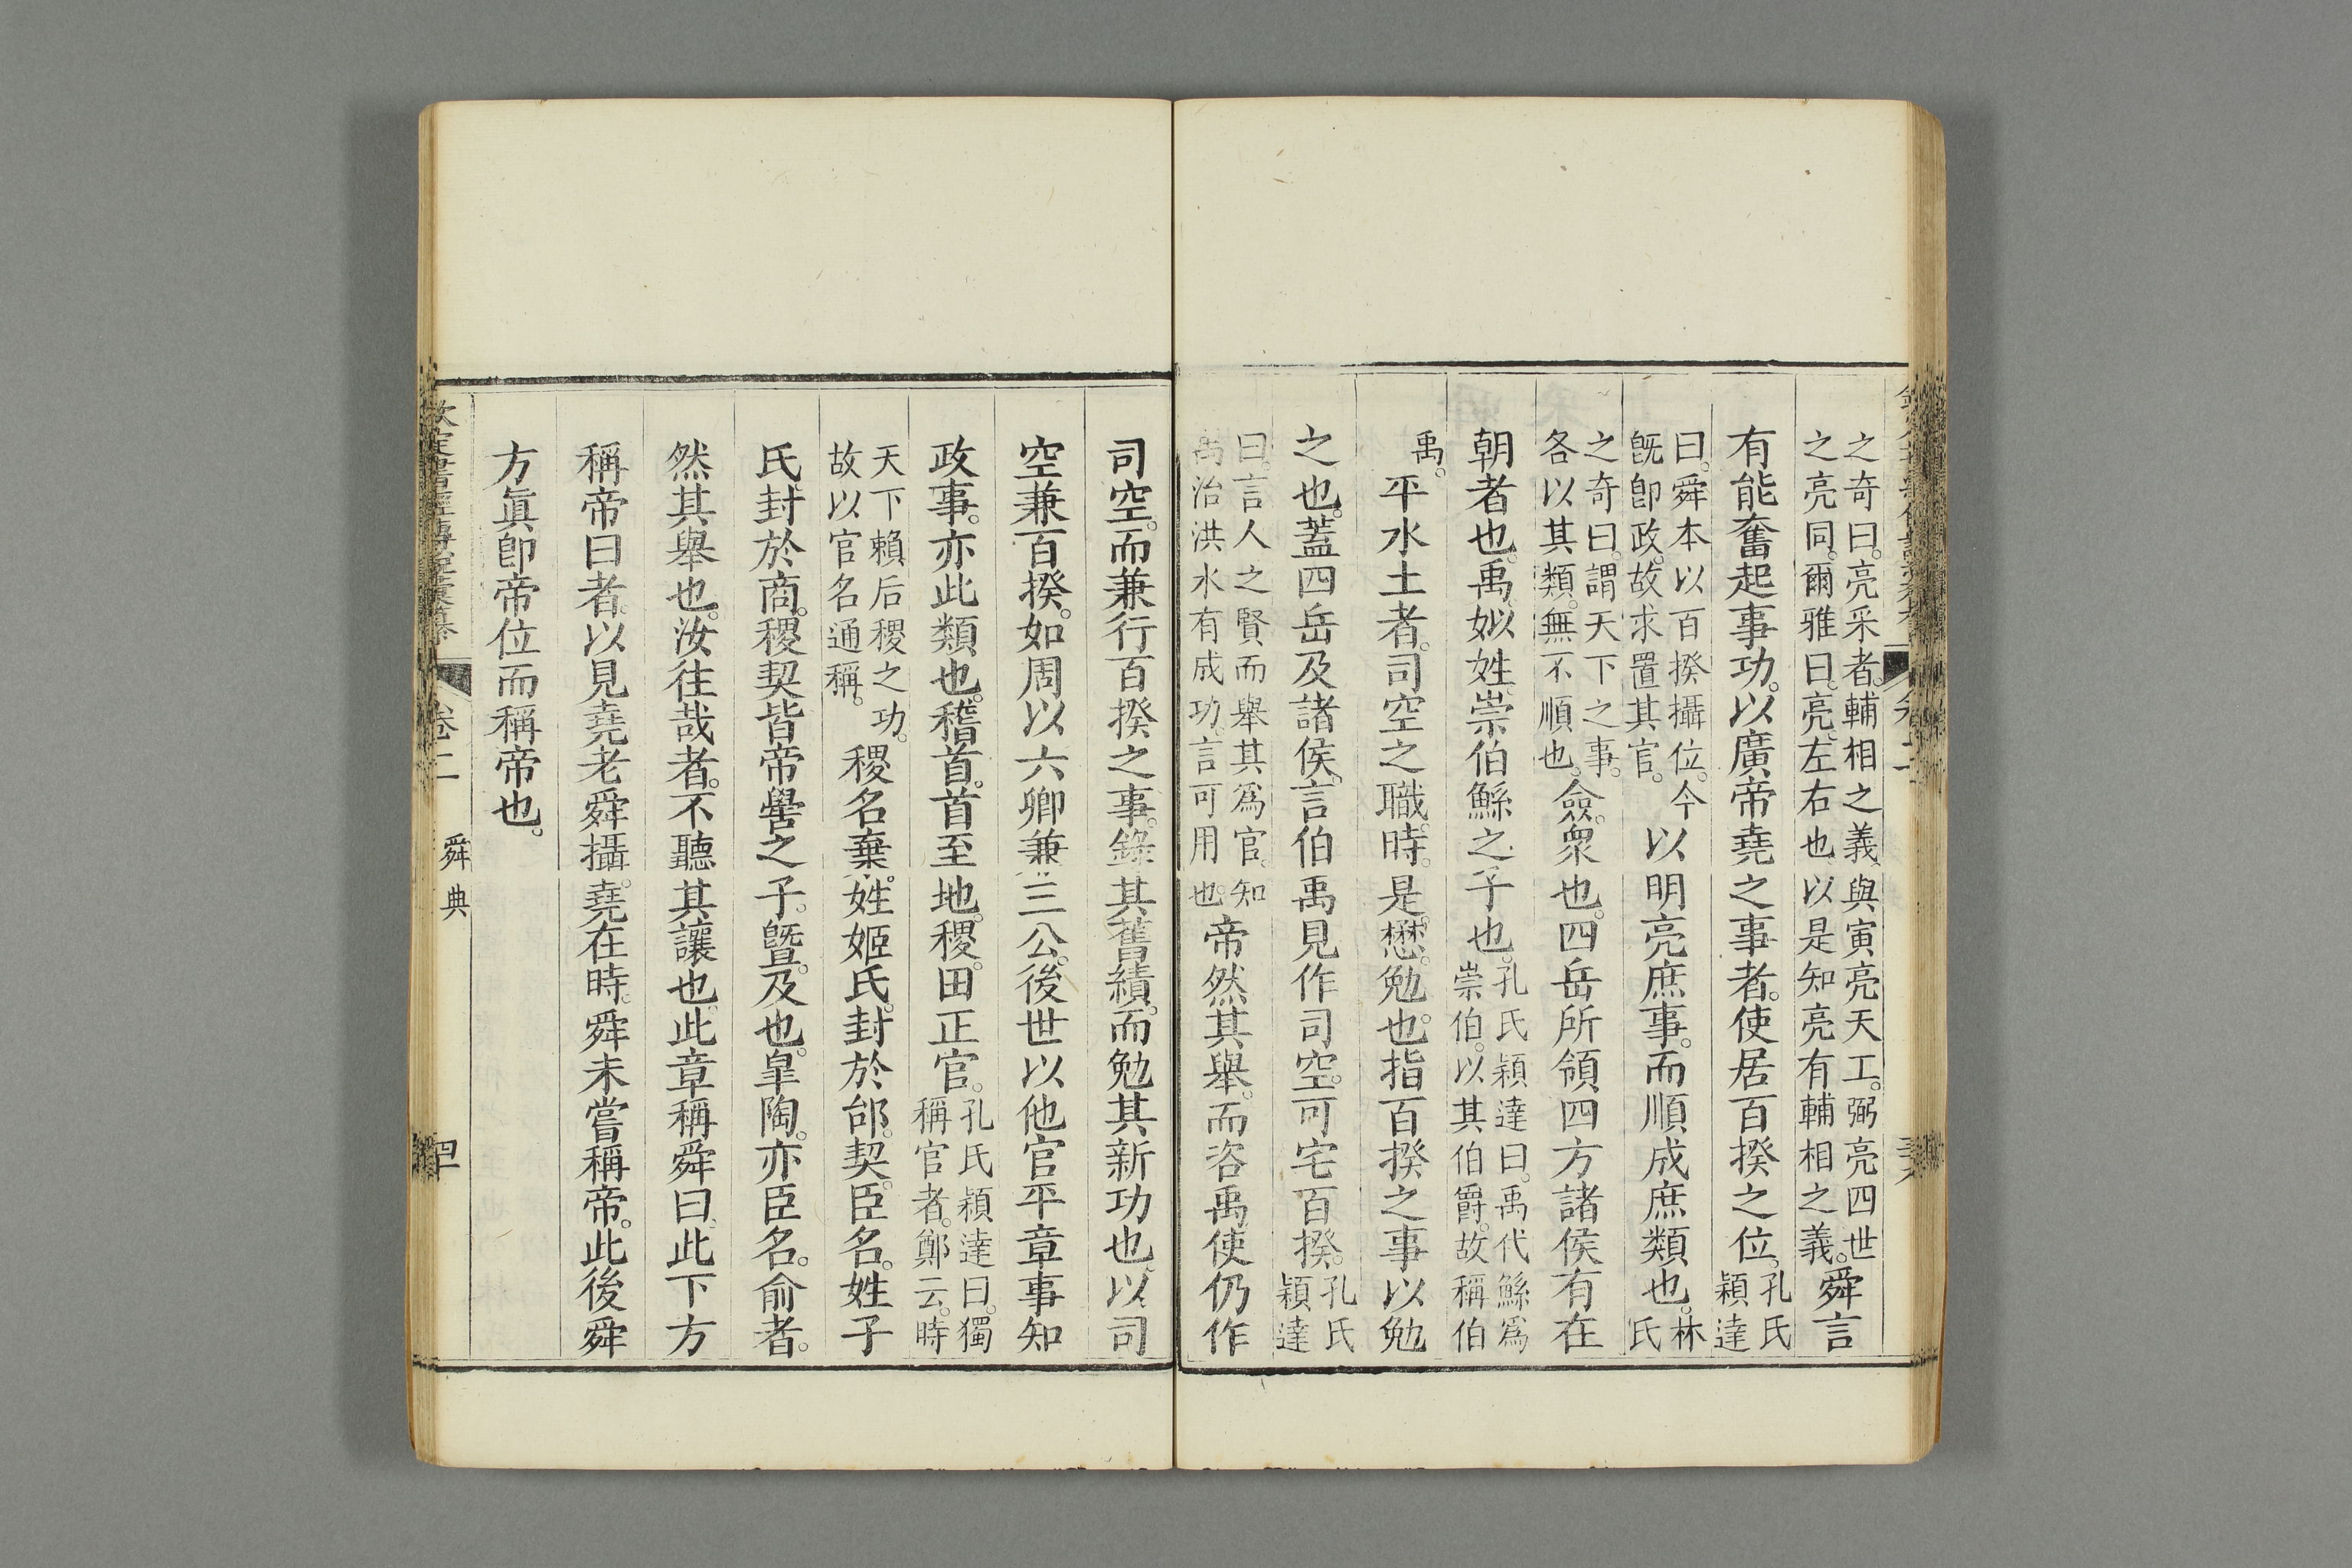 之奇曰。亮采者。輔相之義。與寅亮天工。弼亮四世
之亮同。爾雅曰。亮左右也。以是知亮有輔相之義。舜言
有能奮起事功。以廣帝堯之事者。使居百揆之位。孔氏
穎達
曰。舜本以百揆攝位。今
旣卽政。故求置其官。以明亮庶事。而順成庶類也。林
氏
之奇曰。謂天下之事。
各以其類。無不順也。僉。衆也。四岳所領四方諸侯有在
朝者也。禹。姒姓。崇伯鯀之子也。孔氏穎達曰。禹代鯀爲
崇伯。以其伯爵。故稱伯
禹。平水土者。司空之職。時。是。懋。勉也。指百揆之事以勉
之也。蓋四岳及諸侯。言伯禹見作司空。可宅百揆。孔氏
穎達
曰。言人之賢而舉其爲官。知
禹治洪水有成功。言可用也。帝然其舉。而咨禹使仍作
司空。而兼行百揆之事。錄其舊績。而勉其新功也。以司
空兼百揆。如周以六卿兼三公。後世以他官平章事知
政事。亦此類也。稽首。首至地。稷。田正官。孔氏穎達曰。獨
稱官者。鄭云。時
天下賴后稷之功。
故以官名通稱。稷名棄。姓姬氏。封於邰。契。臣名。姓子
氏。封於商。稷契皆帝嚳之子。曁。及也。臯陶。亦臣名。兪者。
然其舉也。汝往哉者。不聽其讓也。此章稱舜曰。此下方
稱帝曰者。以見堯老舜攝。堯在時。舜未嘗稱帝。此後舜
方眞卽帝位而稱帝也。
卷二 舜典